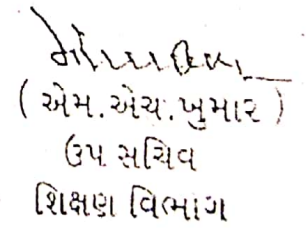 ( એમ.એચ.ખુમાર )
ઉપ સચિવ
શિક્ષણ વિભાગ